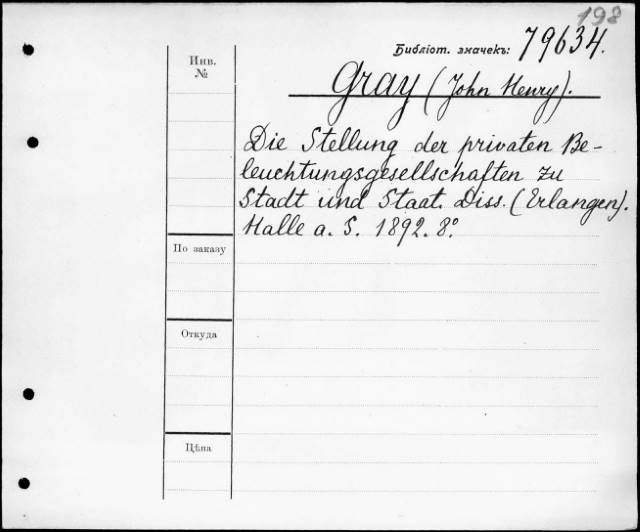 198
Библіот. значекъ: 79634.
Инв.
№
Gray (John Henry).
Die Stellung der privaten Be-
leuchtungsgesellschaften zu
Stadt und Staat. Diss. (Erlangen).
Halle a. S. 1892. 8°.
По заказу
Откуда
Цѣна